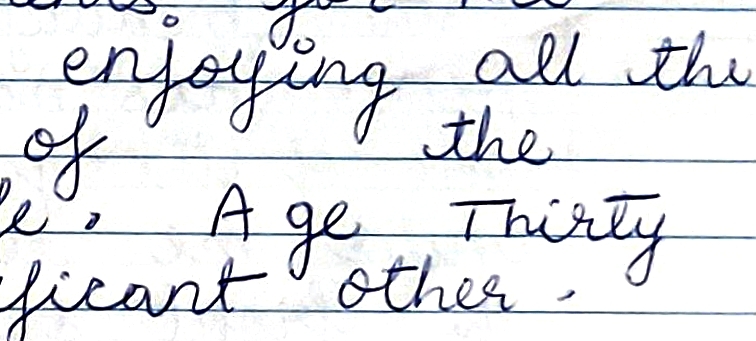 enjoying all the
of the
. Age Thirty
ficant other.